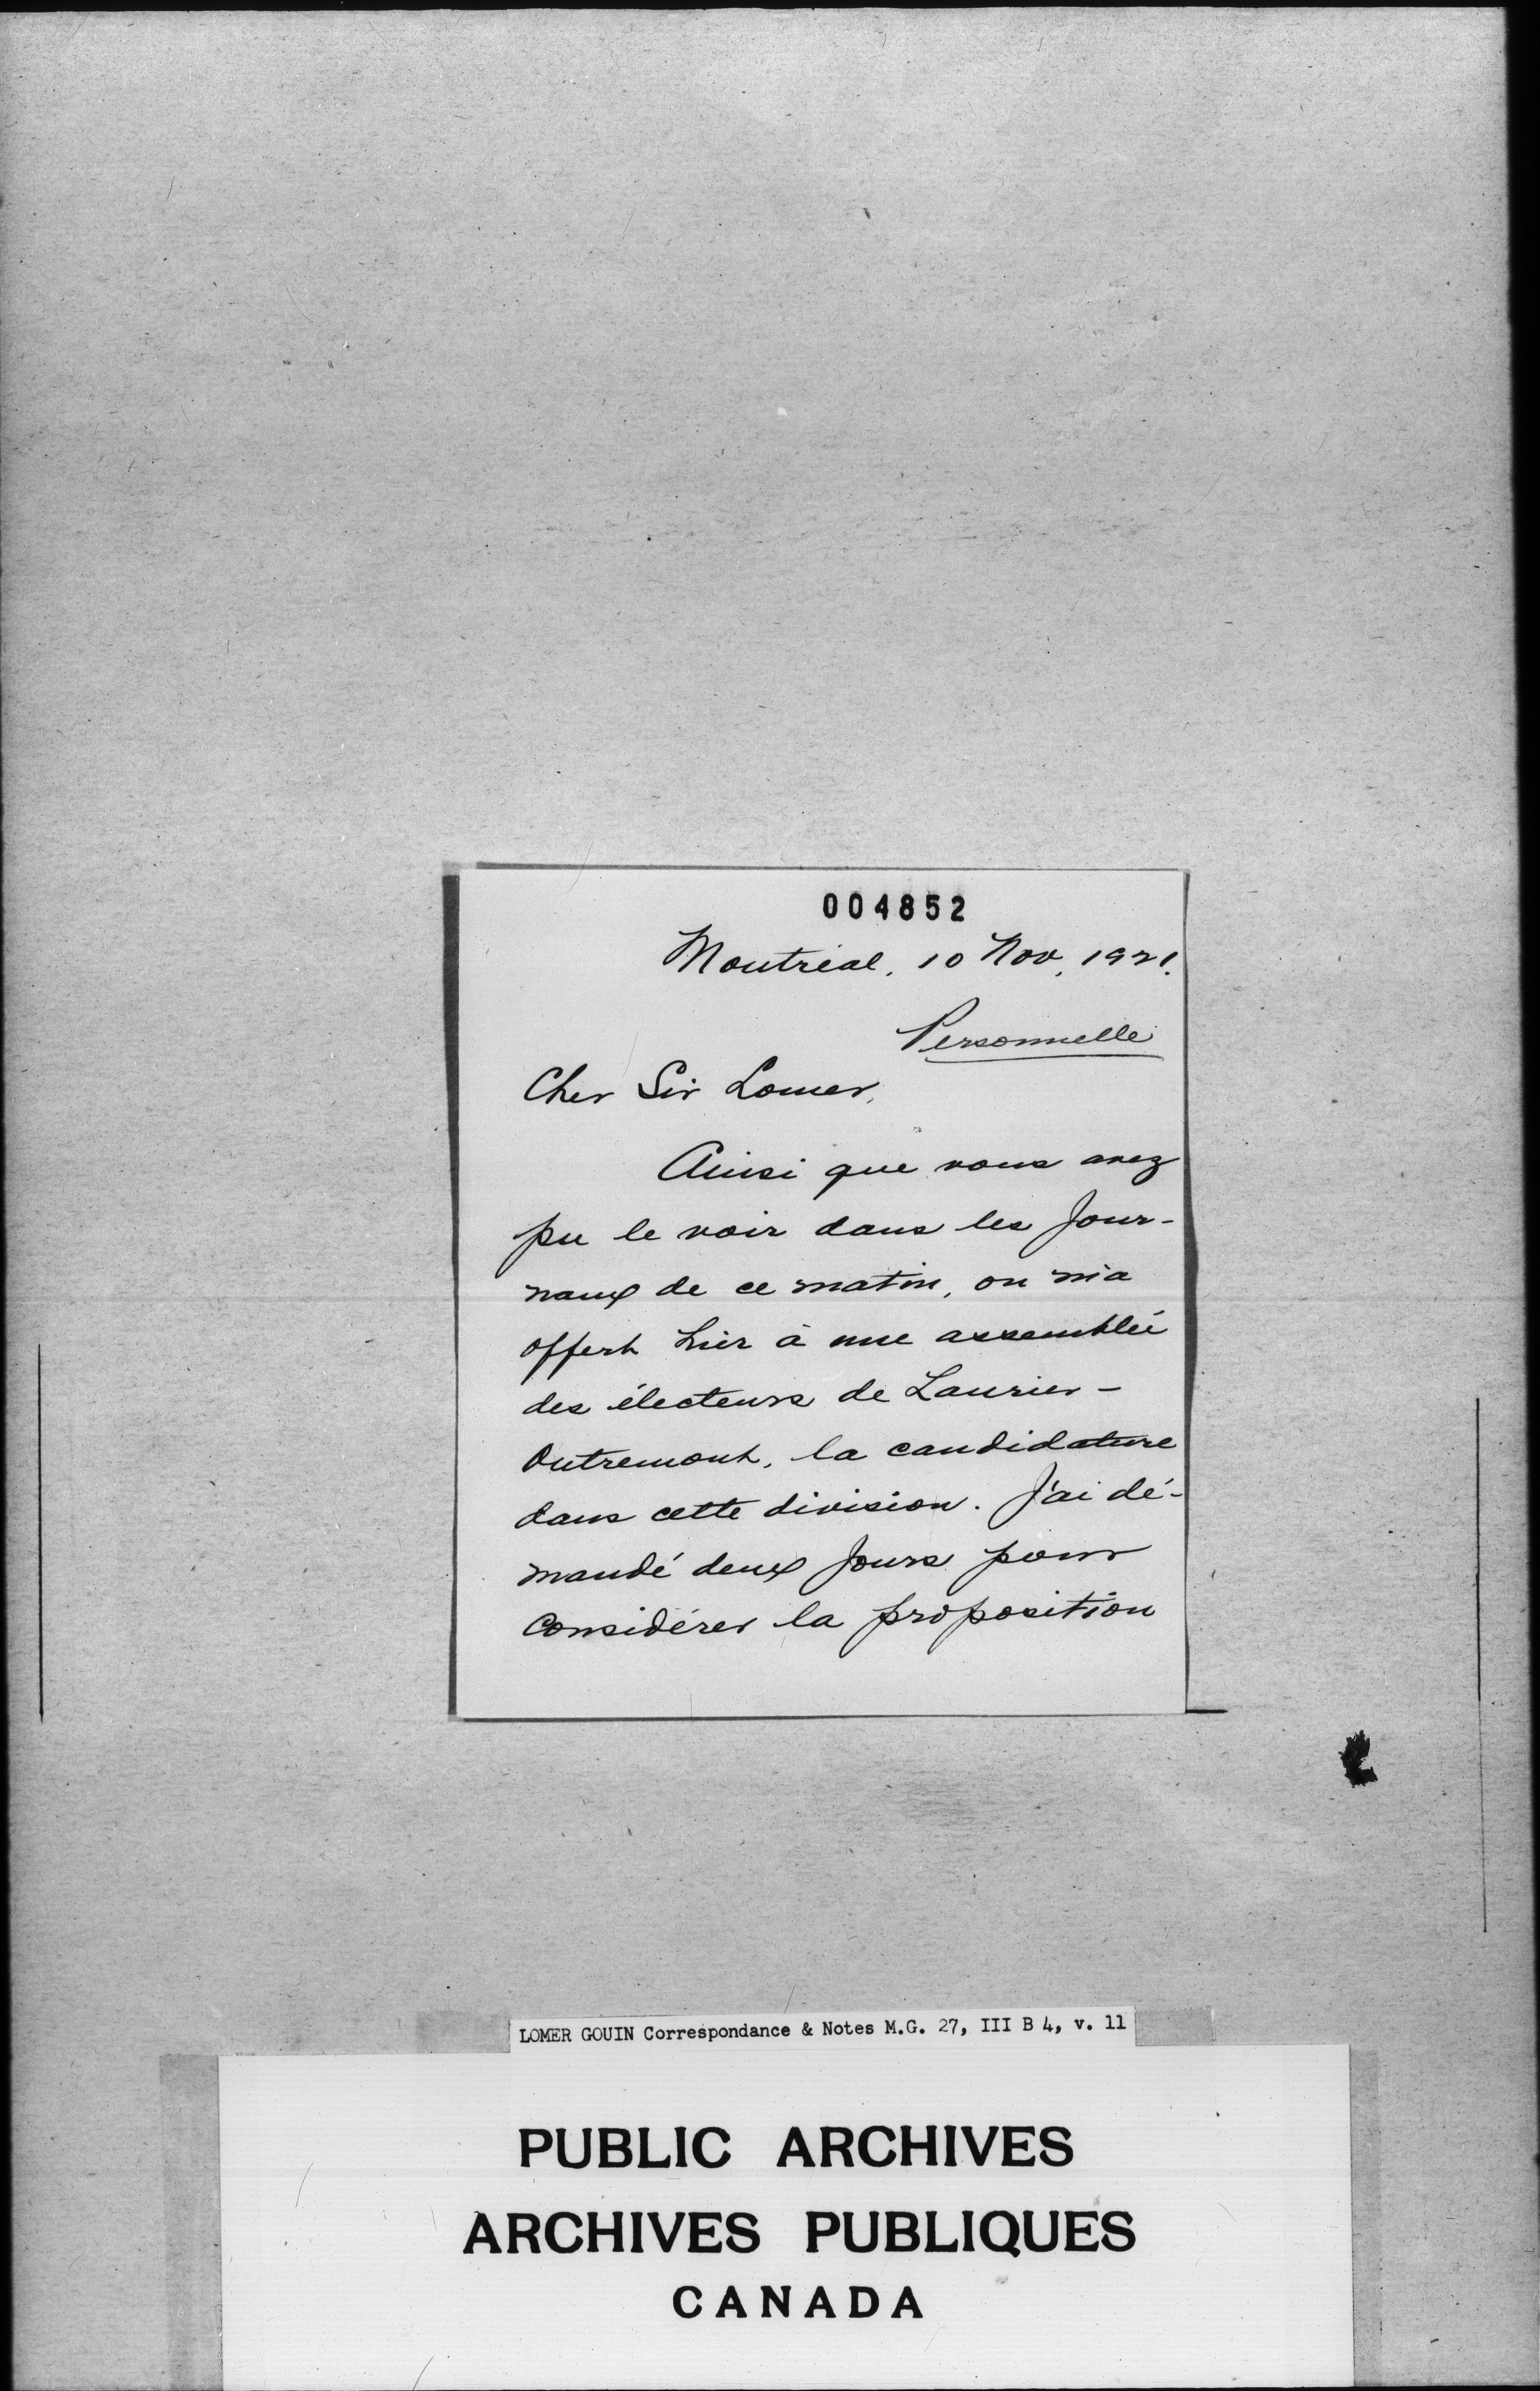 004852
Montréal, 10 Nov, 1921.
Personnelle
Cher Sir Lomer,
Ainsi que vous avez
pu le voir dans les jour-
naux de ce matin, on m'a
offert hier à une assemblée
des électeurs de Laurier-
Outremont, la candidature
dans cette division. J'ai dé-
mandé deux jours pour
considérer la proposition
LOMER GOUIN Correspondance & Notes M.G. 27, III B 4, v. 11
PUBLIC ARCHIVES
ARCHIVES PUBLIQUES
CANADA